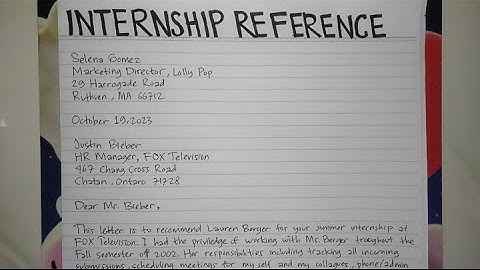 INTERNSHIP REFERENCE
Selena Gomez
Marketing Director, Lolly Pop
29 Harrogade Road
Ruthven, MA 66712
October 19, 2023
Justin Bieber
HR Manager, FOX Television
467 Chang Cross Road
Chatan, Ontaro 71728
Dear Mr. Bieber,
This letter is to recommend Lauren Berger for your summer internship at
FOX Television. I had the priviledge of working with Ms. Berger troughout the
Fall semester off 2002. Her responsibilities including tracking all incoming
submissions, scheduling meetings for my self and my collagues, phone/admin